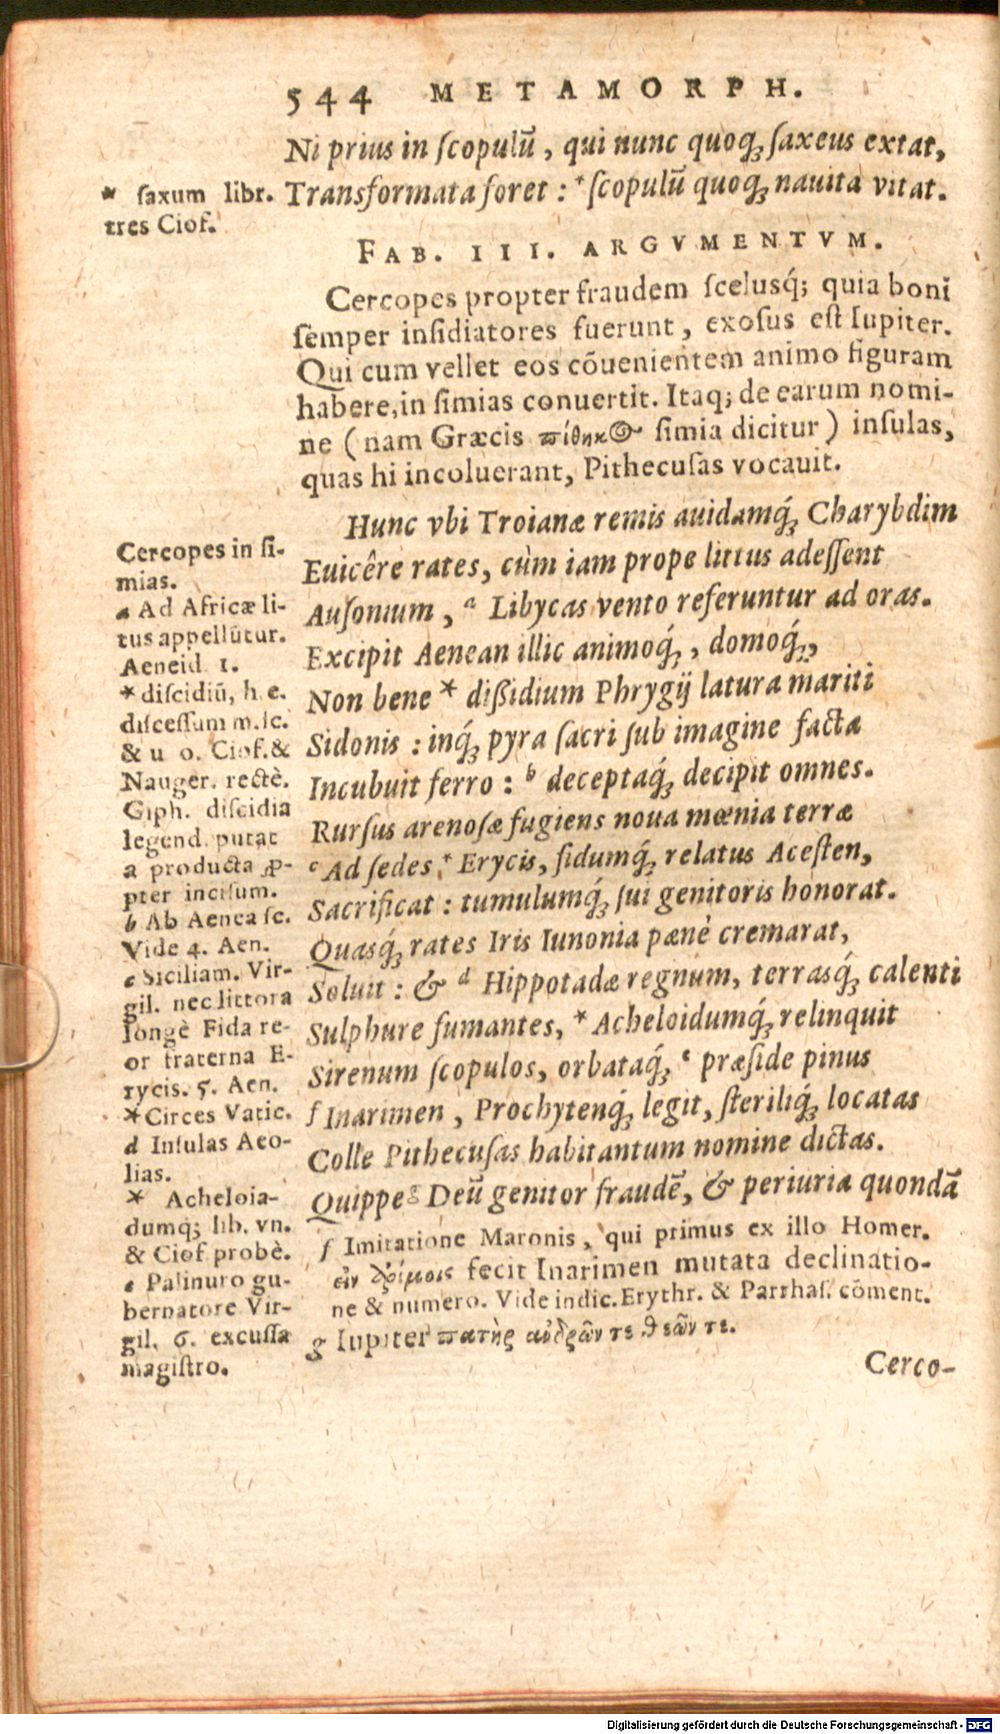 544 METAMORPH.
Ni prius in ſcopulũ, qui nunc quoq; ſaxeus extat,
Transformata foret: *ſcopulũ quoq; nauita vitat.
* ſaxum libr.
tres Cioſ.
FAB. III. ARGVMENTVM.
Cercopes propter fraudem ſcelusq́; quia boni
ſemper inſidiatores fuerunt, exoſus eſt Iupiter.
Qui cum vellet eos cõuenientem animo figuram
habere, in ſimias conuertit. Itaq; de earum nomi-
ne (nam Græcis πίθηκος ſimia dicitur) inſulas,
quas hi incoluerant, Pithecuſas vocauit.
Hunc vbi Troianæ remis auidamq́; Charybdim
Euicêre rates, cùm iam prope littus adeſſent
Auſonium, a Libycas vento referuntur ad oras.
Excipit Aenean illic animoq́;, domoq́;,
Non bene * dißidium Phrygij latura mariti
Sidonis: inq́; pyra ſacri ſub imagine facta
Incubuit ferro: b deceptaq́; decipit omnes.
Rurſus arenoſæ fugiens noua mœnia terræ
c Ad ſedes * Erycis, fidumq́; relatus Aceſten,
Sacrificat: tumulumq́; ſui genitoris honorat.
Quasq́; rates Iris Iunonia pænè cremarat,
Soluit: & d Hippotadæ regnum, terrasq́; calenti
Sulphure fumantes, * Acheloidumq́; relinquit
Sirenum ſcopulos, orbataq́; e præſide pinus
f Inarimen, Prochytenq́; legit, ſteriliq́; locatas
Colle Pithecuſas habitantum nomine dictas.
Quippe g Deũ genitor fraudẽ, & periuria quondã
Cercopes in ſi-
mias.
a Ad Africæ li-
tus appellũtur.
Aeneid. 1.
* diſcidiũ, h. e.
diſceſſum m. ſc.
& u o. Cioſ. &
Nauger. rectè.
Giph. diſcidia
legend. putat
a producta ꝓ-
pter inciſum.
b Ab Aenea ſc.
Vide 4. Aen.
c Siciliam. Vir-
gil. nec littora
longè Fida re-
or fraterna E-
rycis. 5. Aen.
* Circes Vatic.
d Inſulas Aeo-
lias.
* Acheloia-
dumq́; lib. vn.
& Cioſ. probè.
e Palinuro gu-
bernatore Vir-
gil. 6. excuſſa
magiſtro.
f Imitatione Maronis, qui primus ex illo Homer.
εἰν fecit Inarimen mutata declinatio-
ne & numero. Vide indic. Erythr. & Parrhaſ. cõment.
g Iupiter πατὴρ ἀνδρῶν τε θεῶν τε.
Cerco-
Digitalisierung gefördert durch die Deutsche Forschungsgemeinschaft - DFG